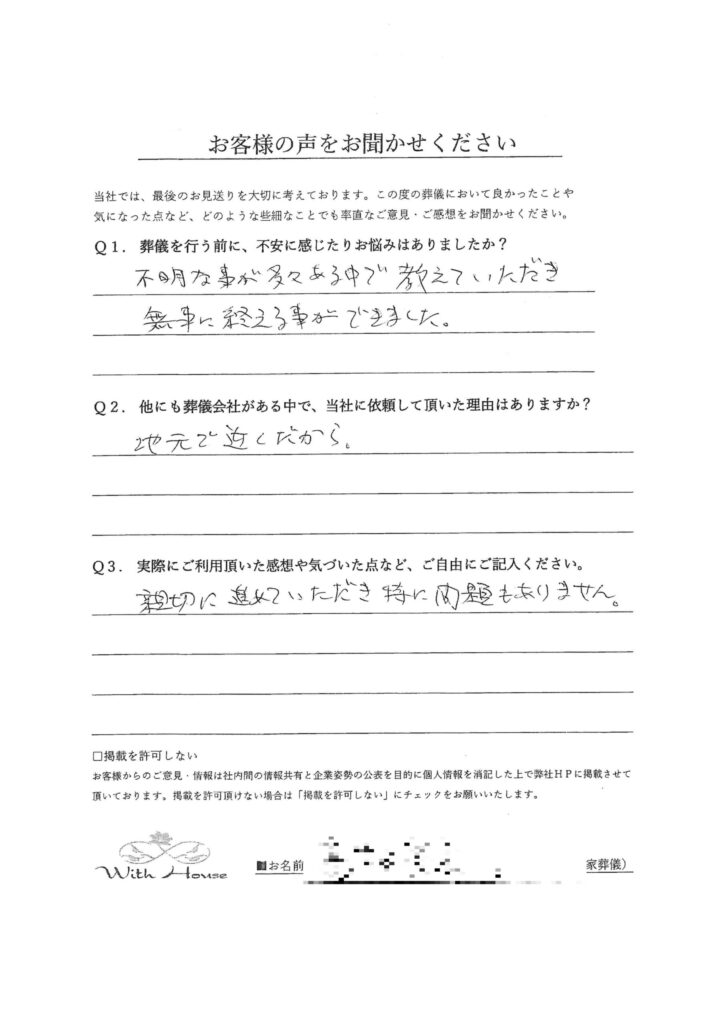 お客様の声をお聞かせください
当社では、最後のお見送りを大切に考えております。この度の葬儀において良かったことや
気になった点など、どのような些細なことでも率直なご意見・ご感想をお聞かせください。
Q1. 葬儀を行う前に、不安に感じたりお悩みはありましたか？
不明な事が多々ある中で教えていただき
無事に終える事ができました。
Q2. 他にも葬儀会社がある中で、当社に依頼して頂いた理由はありますか？
地元で近くだから。
Q3. 実際にご利用頂いた感想や気づいた点など、ご自由にご記入ください。
親切に進めていただき特に問題もありません。
□掲載を許可しない
お客様からのご意見・情報は社内間の情報共有と企業姿勢の公表を目的に個人情報を消記した上で弊社HPに掲載させて
頂いております。掲載を許可頂けない場合は「掲載を許可しない」にチェックをお願いいたします。
With House
お名前 家葬儀）